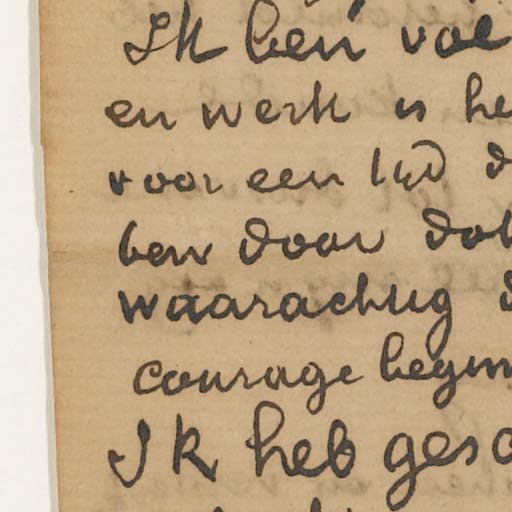 Ik ben vol
en werk is he
voor een tijd d
ben door dok
waarachtig d
courage begin
Ik heb gesc